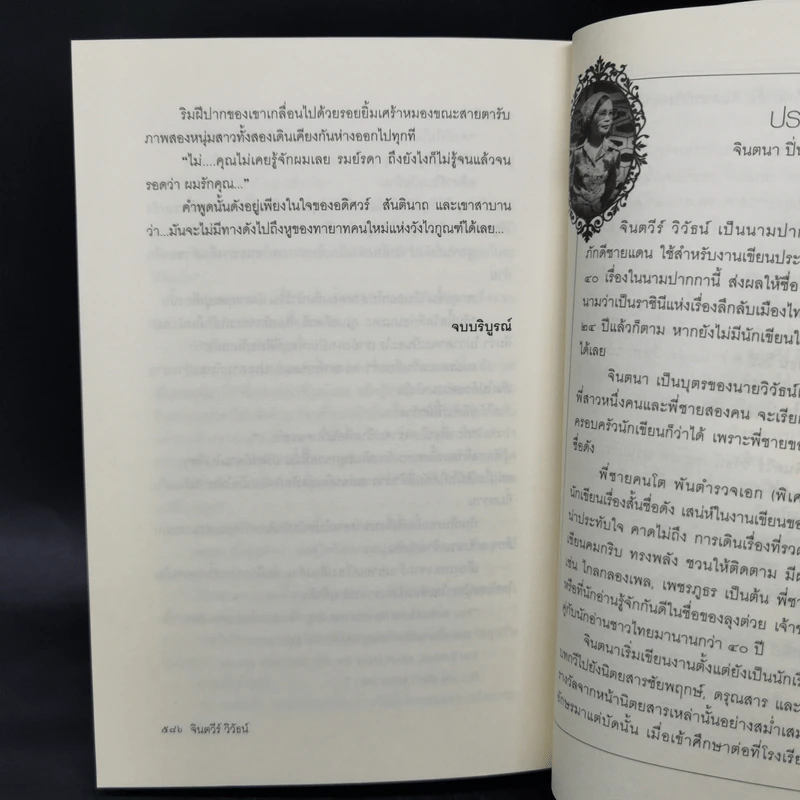 ริมฝีปากของเขาเกลื่อนไปด้วยรอยยิ้มเศร้าหมองขณะสายตารับ
ภาพสองหนุ่มสาวทั้งสองเดินเคียงกันห่างออกไปทุกที
“ไม่....คุณไม่เคยรู้จักผมเลย รมย์รดา ถึงยังไงก็ไม่รู้จนแล้วจน
รอดว่า ผมรักคุณ...”
คำพูดนั้นดังอยู่เพียงในใจของอดิศวร์ สันตินาถ และเขาสาบาน
ว่า...มันจะไม่มีทางดังไปถึงหูของทายาทคนใหม่แห่งวังไวกูณฑ์ได้เลย...
จบบริบูรณ์
๕๘๖ จินตวีร์ วิวัธน์
ปร
จินตนา ปิ่
จินตวีร์ วิวัธน์ เป็นนามปาก
ภักดีชายแดน ใช้สำหรับงานเขียนประ
๔๐ เรื่องในนามปากกานี้ ส่งผลให้ชื่อ
นามว่าเป็นราชินีแห่งเรื่องลึกลับเมืองไท
๒๔ ปีแล้วก็ตาม หากยังไม่มีนักเขียนใ
ได้เลย
จินตนา เป็นบุตรของนายวิวัธน์
พี่สาวหนึ่งคนและพี่ชายสองคน จะเรีย
ครอบครัวนักเขียนก็ว่าได้ เพราะพี่ชายข
ชื่อดัง
พี่ชายคนโต พันตำรวจเอก (พิเศ
นักเขียนเรื่องสั้นชื่อดัง เสน่ห์ในงานเขียนขอ
น่าประทับใจ คาดไม่ถึง การเดินเรื่องที่รวด
เขียนคมกริบ ทรงพลัง ชวนให้ติดตาม มี
เช่น ไกลกลองเพล, เพชรภูธร เป็นต้น พี่ช
หรือที่นักอ่านรู้จักกันดีในชื่อของลุงต่วย เจ้า
คู่กับนักอ่านชาวไทยมานานกว่า ๔๐ ปี
จินตนาเริ่มเขียนงานตั้งแต่ยังเป็นนักเรี
บทกวีไปยังนิตยสารชัยพฤกษ์, ดรุณสาร และ
รางวัลจากหน้านิตยสารเหล่านั้นอย่างสม่ำเสม
อักษรมาแต่บัดนั้น เมื่อเข้าศึกษาต่อที่โรงเรีย